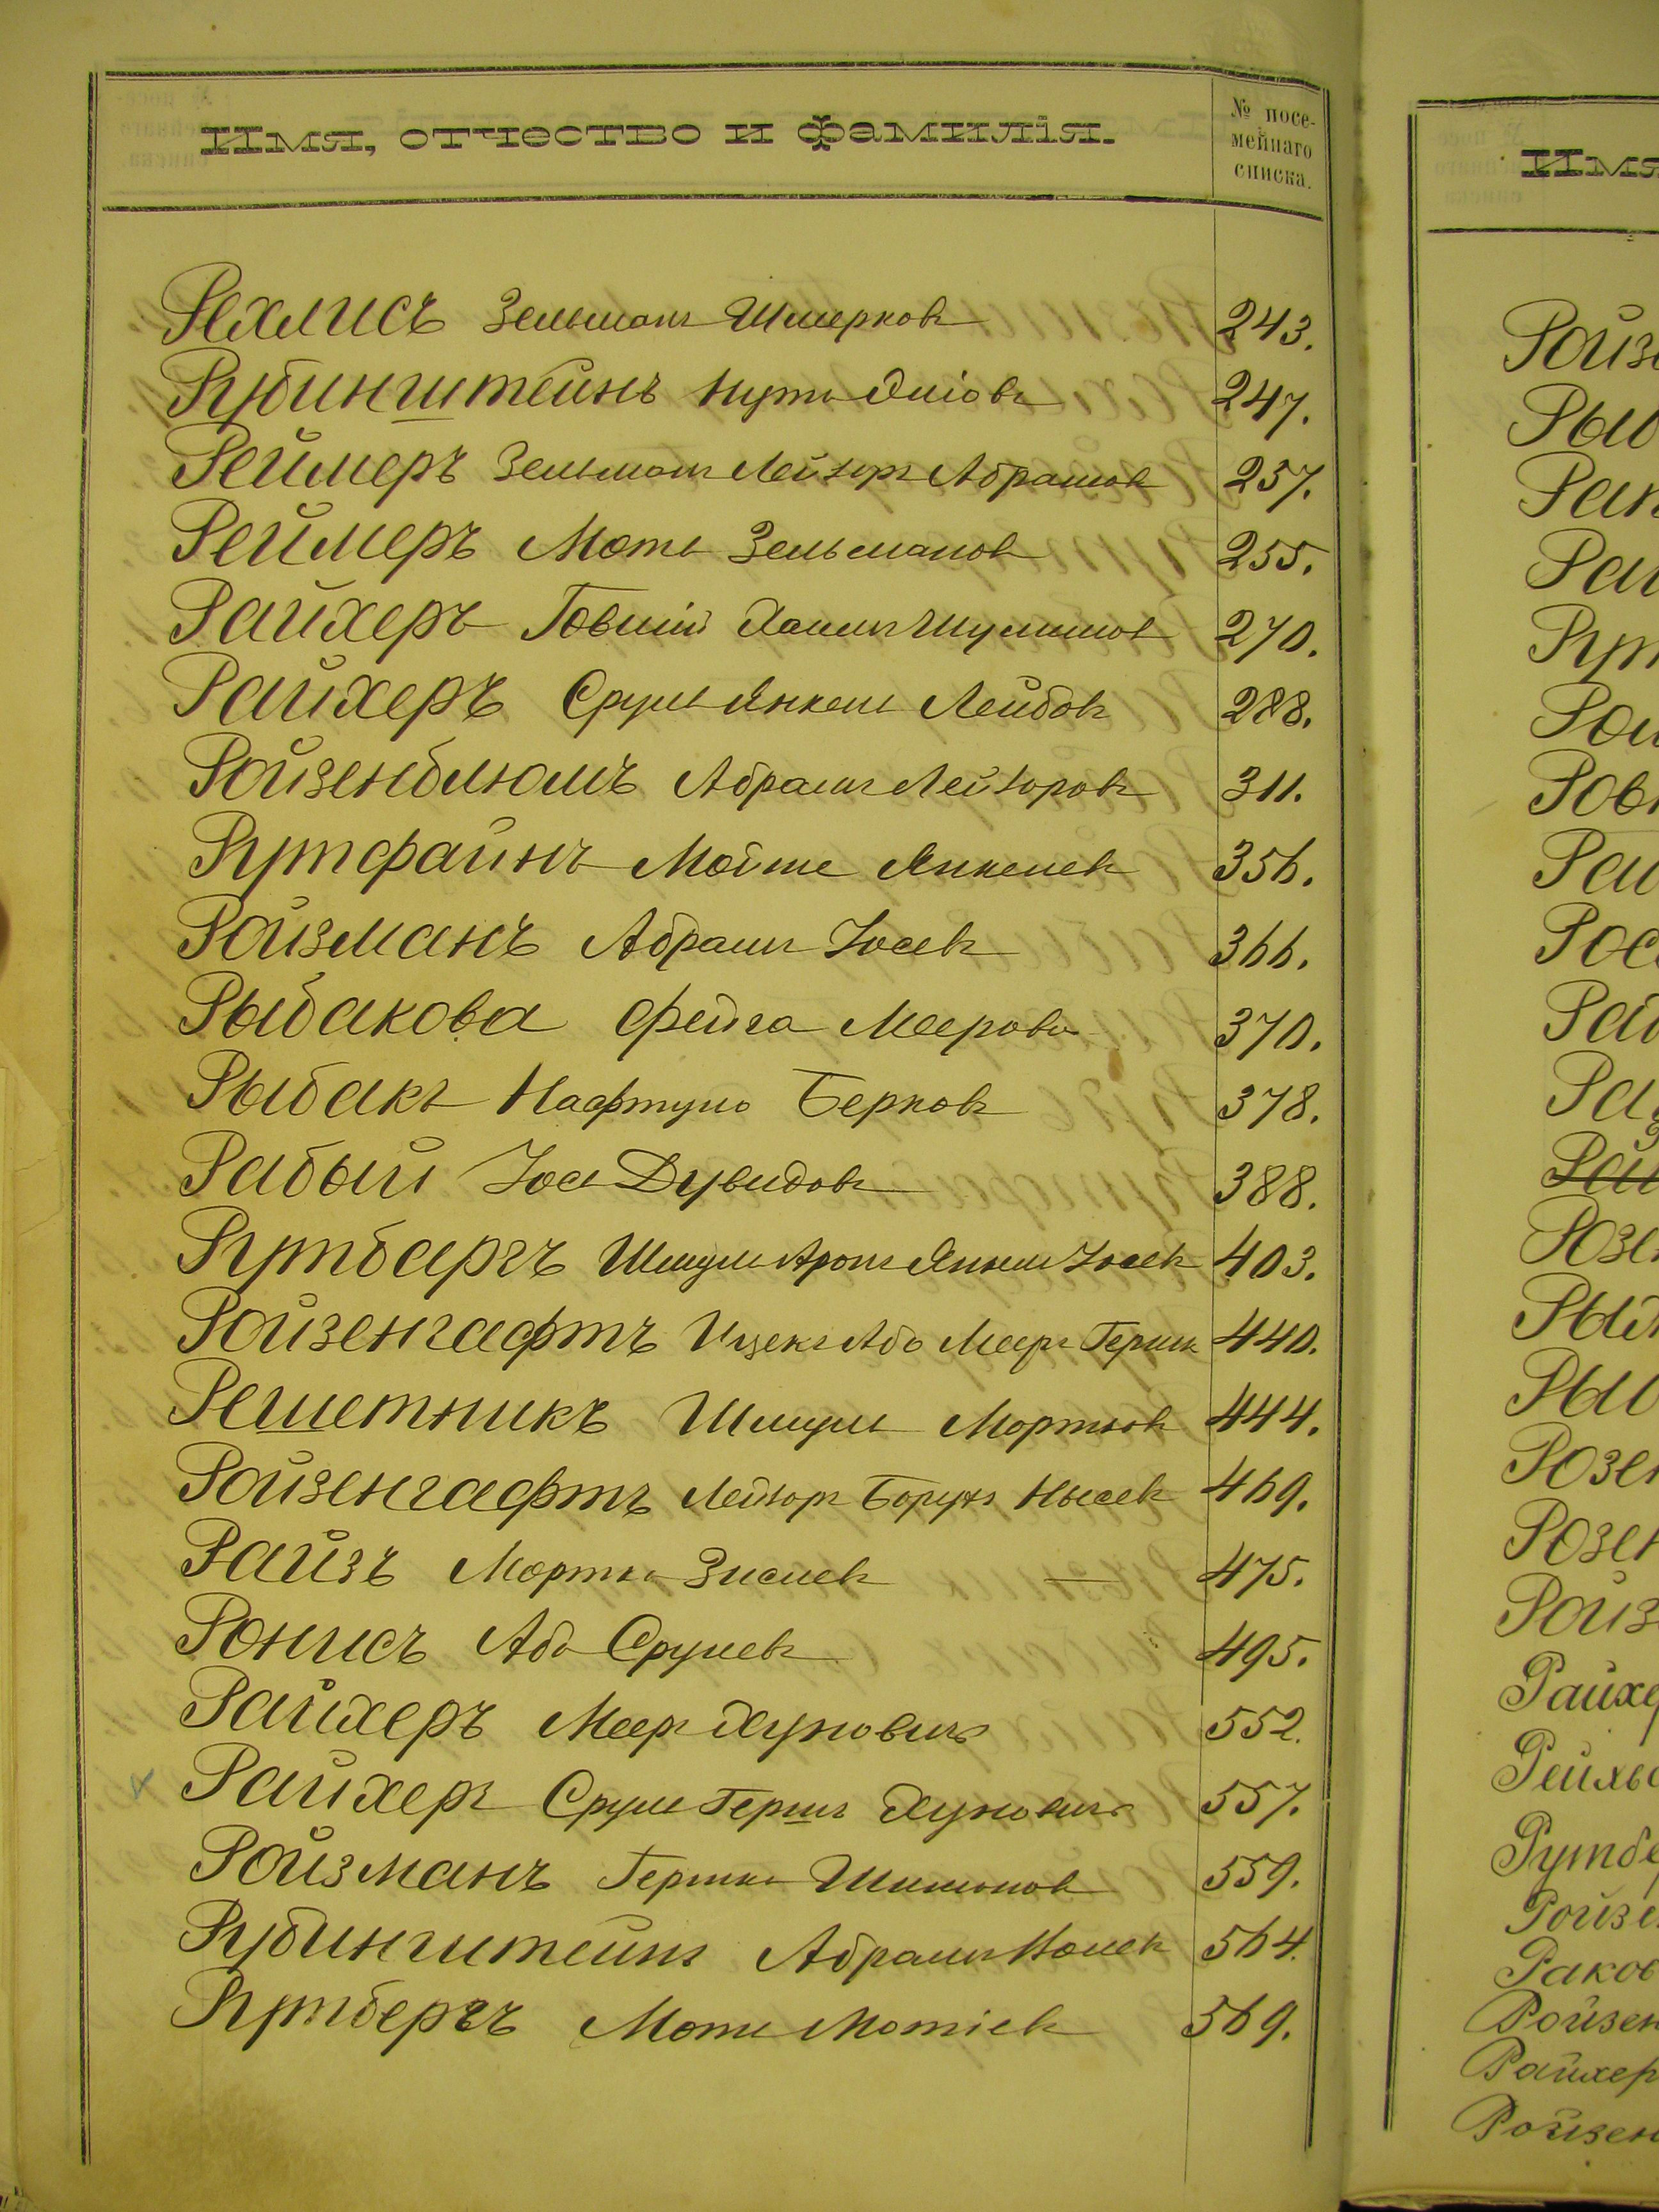 Имя, отчество и фамилія.
№ посе-
мейнаго
списка.
Рехлисъ Зельманъ Шмерковъ 243.
Рубинштейнъ Нута 247.
Реймеръ Зельманъ Лейзоръ Абрамовъ 257.
Реймеръ Моть Зельмановъ 255.
Райхеръ Говшій Хаимъ Шулимовъ 270.
Райхеръ Сруль Янкель Лейбовъ 288.
Ройзенблюмъ Абрамъ Лейзоровъ 311.
Рутфайнъ Мойше Янкелевъ 356.
Ройзманъ Абрамъ Іосевъ 366.
Рыбакова Фейга Меерова 370.
Рыбакъ Нафтула Берковъ 378.
Рабый Іось Дувидовъ 388.
Рутбергъ Шмуль Аронъ Янкель Іосевъ 403.
Ройзенгафтъ Ицекъ Аба Мееръ Герш 440.
Решетникъ Шмуль Мортковъ 444.
Ройзенгафтъ Лейзоръ Борухъ Нысевъ 469.
Райзъ Мортко Зислевъ — 475.
Ронисъ Аба Срулевъ 495.
Райхеръ Мееръ Хуновичъ 552.
Райхеръ Сруль Гершъ Хуновичъ 557.
Ройзманъ Гершко Шимоновъ 559.
Рубинштейнъ Абрамъ 564.
Рутбергъ Моть Мотіевъ 569.
Имя
Ройз
Ры
Рай
Рут
Рой
Ров
Рос
Розе
Розен
Розен
Ройз
Райхе
Рутбе
Ройзе
Раков
Ройзен
Райхер
Ройзен